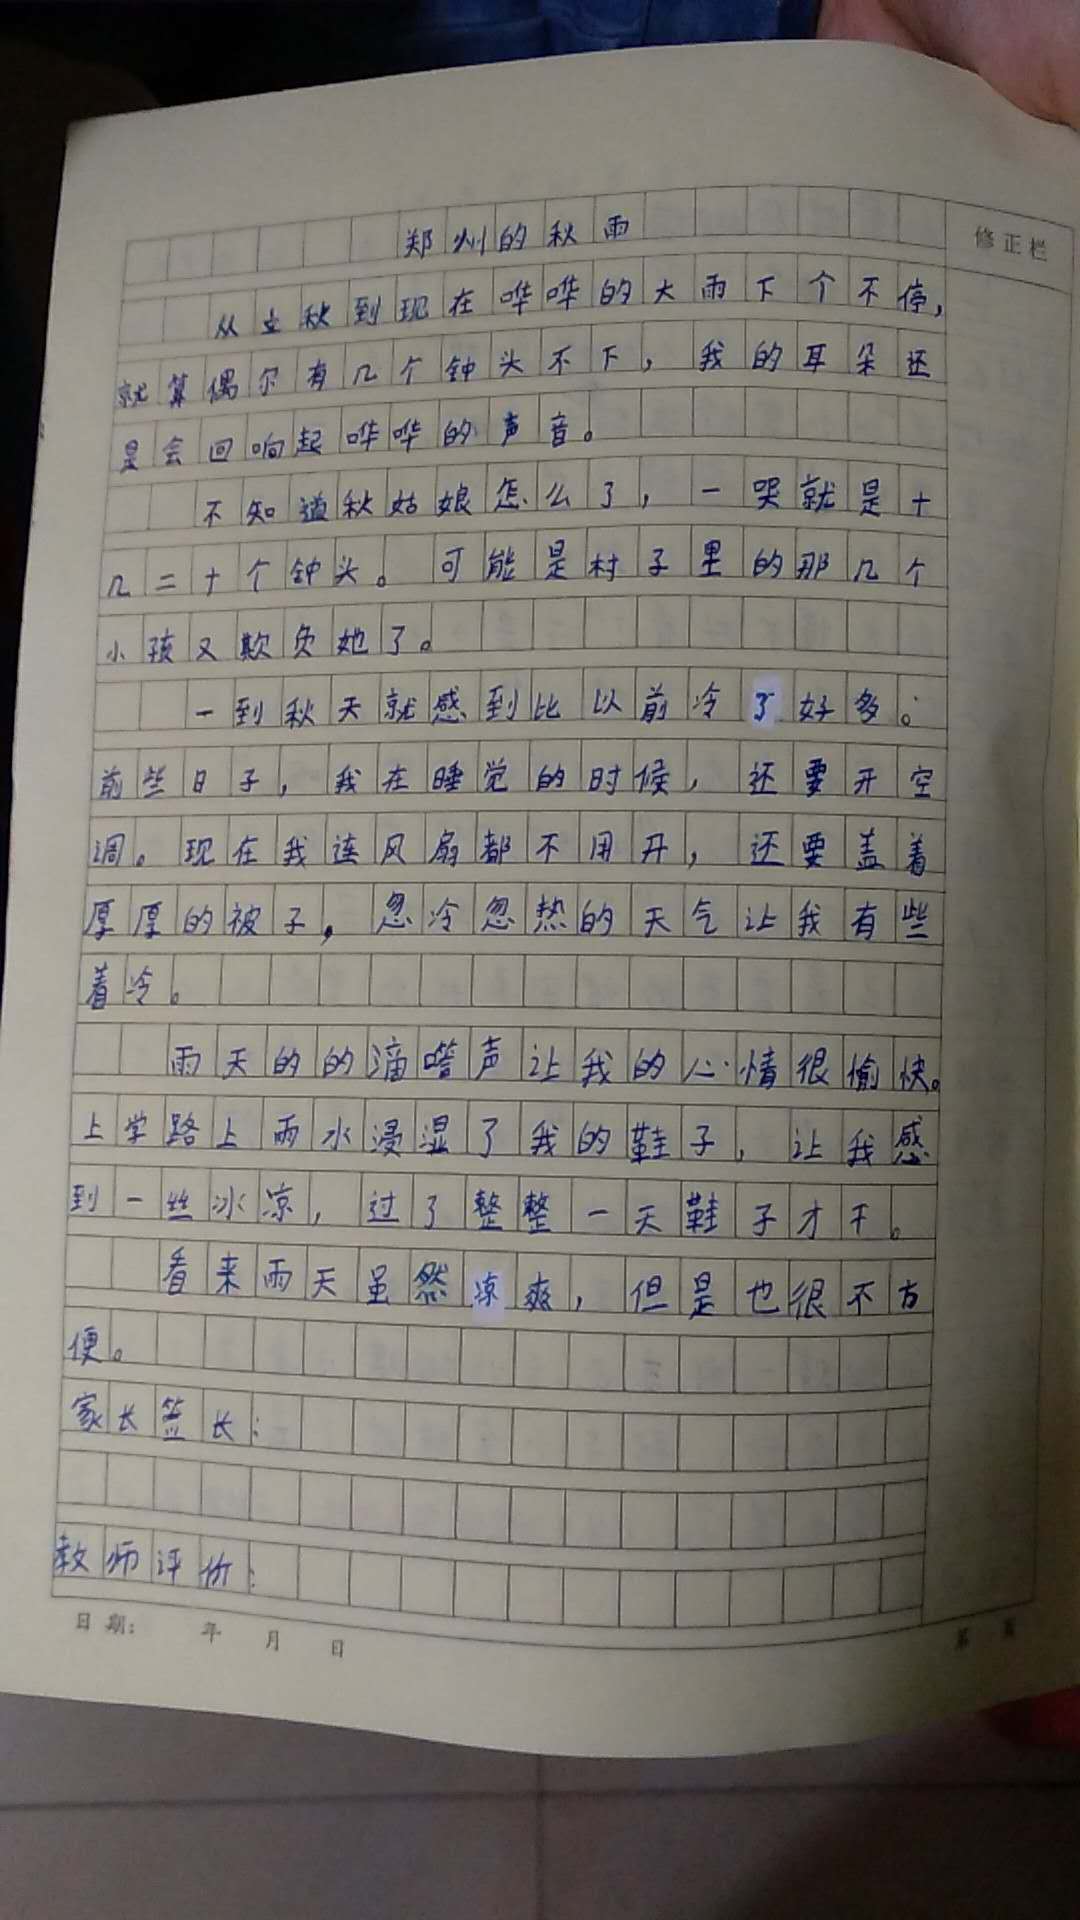 郑州的秋雨
修正栏
从立秋到现在哗哗的大雨下个不停，
就算偶尔有几个钟头不下，我的耳朵还
是会回响起哗哗的声音。
不知道秋姑娘怎么了，一哭就是十
几二十个钟头。可能是村子里的那几个
小孩又欺负她了。
一到秋天就感到比以前冷了好多。
前些日子，我在睡觉的时候，还要开空
调。现在我连风扇都不用开，还要盖着
厚厚的被子，忽冷忽热的天气让我有些
着冷。
雨天的的滴嗒声让我的心情很愉快。
上学路上雨水浸湿了我的鞋子，让我感
到一丝冰凉，过了整整一天鞋子才干。
看来雨天虽然凉爽，但是也很不方
便。
家长签长：
教师评价：
日期： 年 月 日
第 页